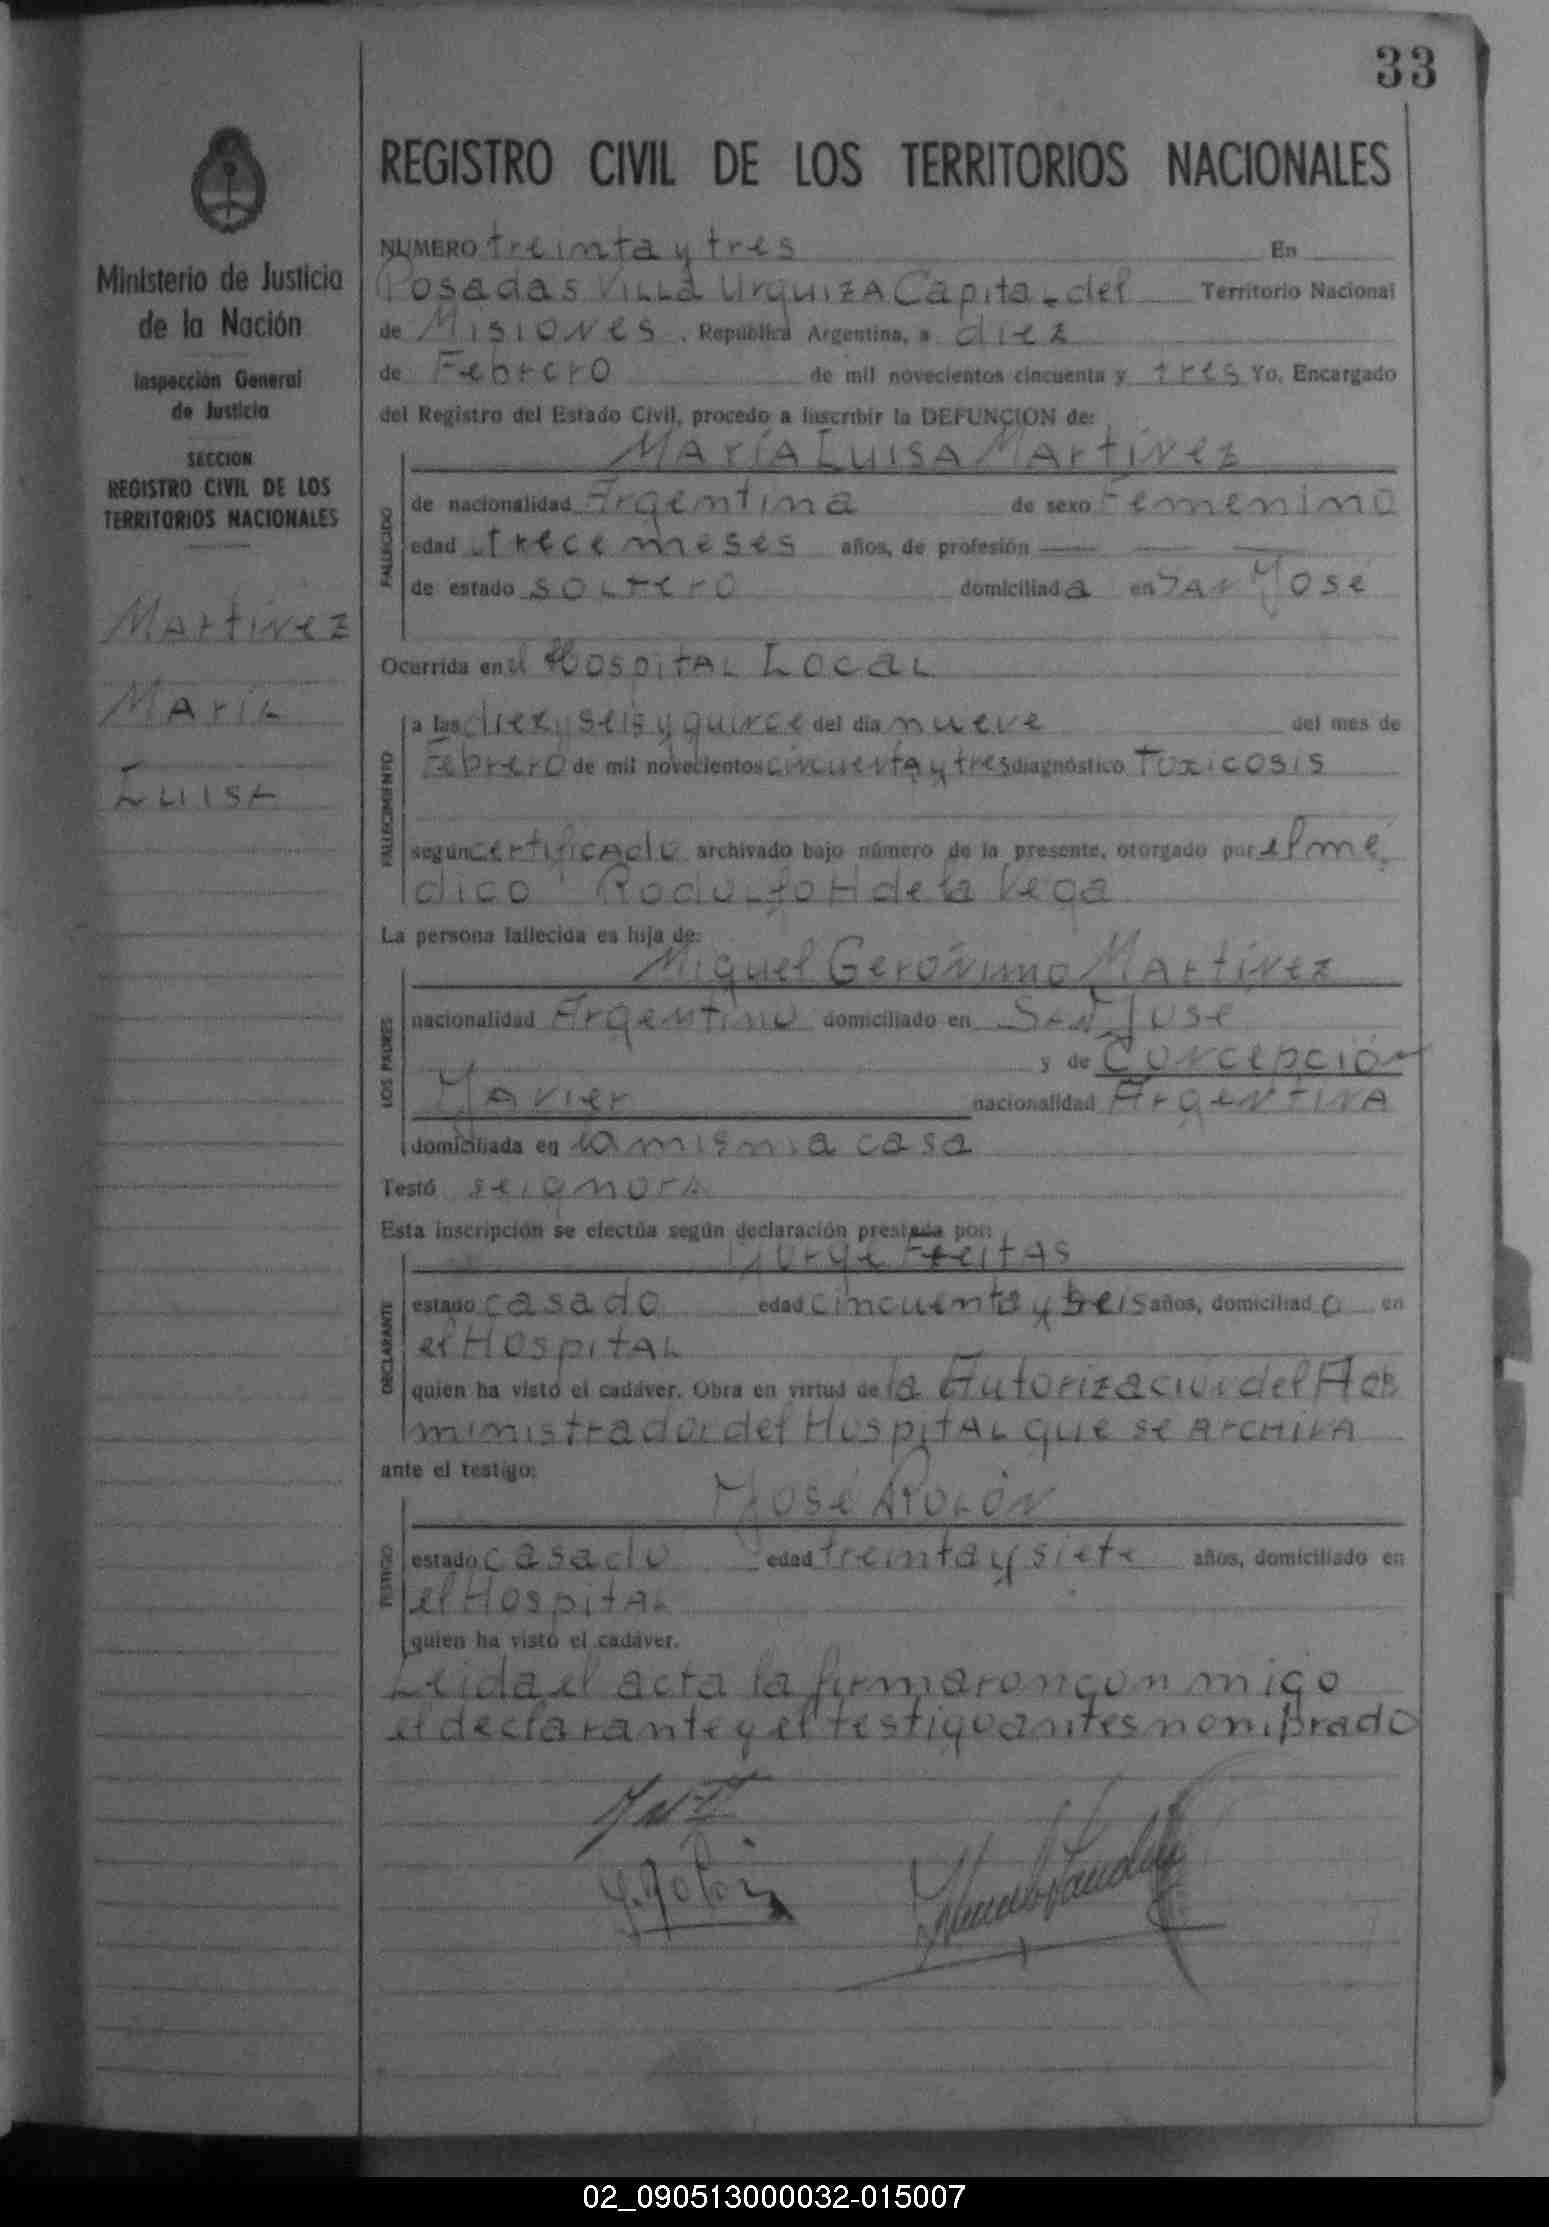 33
REGISTRO CIVIL DE LOS TERRITORIOS NACIONALES
Ministerio de Justicia
de la Nación
Inspección General
de Justicia
SECCION
REGISTRO CIVIL DE LOS
TERRITORIOS NACIONALES
Martinez
María
Luisa
NUMERO treinta y tres En
Posadas Villa Urquiza Capital del Territorio Nacional
de Misiones, República Argentina, a diez
de Febrero de mil novecientos cincuenta y tres Yo, Encargado
del Registro del Estado Civil, procedo a inscribir la DEFUNCION de:
María Luisa Martínez
FALLECIDO
de nacionalidad Argentina de sexo Femenino
edad trece meses años, de profesión
de estado soltero domiciliada en San José
Ocurrida en el Hospital Local
FALLECIMIENTO
a las diez y seis y quince del día nueve del mes de
Febrero de mil novecientos cincuenta y tres diagnóstico Toxicosis
según certificado archivado bajo número de la presente, otorgado por el mé
dico Rodolfo H de la Vega
La persona fallecida es hija de:
Miguel Gerónimo Martínez
LOS PADRES
nacionalidad Argentino domiciliado en San José
y de Concepción
Javier nacionalidad Argentina
domiciliada en la misma casa
Testó seignora
Esta inscripción se efectúa según declaración prestada por:
Jorge Freitas
DECLARANTE
estado casado edad cincuenta y seis años, domiciliado en
el Hospital
quien ha visto el cadáver. Obra en virtud de la Autorización del Ad
ministrador del Hospital que se archiva
ante el testigo:
José Rolón
TESTIGO
estado casado edad treinta y siete años, domiciliado en
el Hospital
quien ha visto el cadáver.
Leida el acta la firmaron con migo
el declarante y el testigo antes nombrado
J. Rolón
02_090513000032-015007